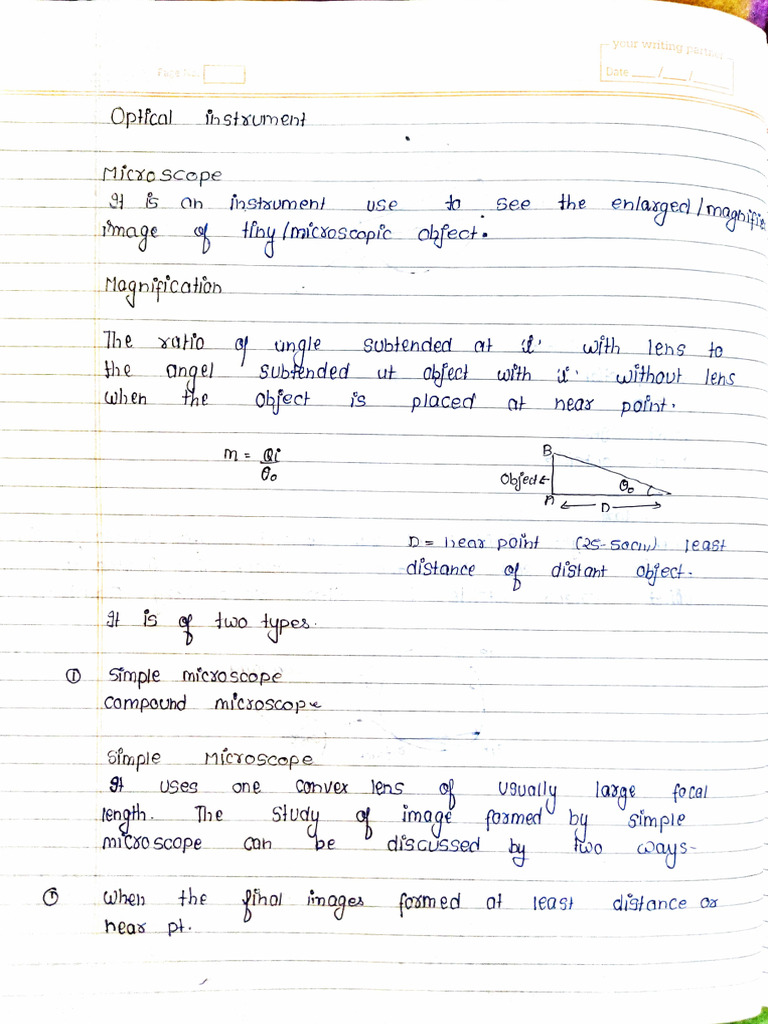 your writing partn
Page No.
Date ___/___/___
Optical instrument
Microscope
It is an instrument use to see the enlarged/magnifie
image of tiny/microscopic object.
Magnification
The ratio of angle subtended at with lens to
the angel subtended at object with without lens
when the object is placed at near point.
m = θi
θo
B
Object
θo
A
D
D = near point (25-50cm) least
distance of distant object.
It is of two types.
① Simple microscope
compound microscope
Simple Microscope
It uses one convex lens of usually large focal
length. The study of image formed by simple
microscope can be discussed by two ways-
① When the final images formed at least distance or
near pt.